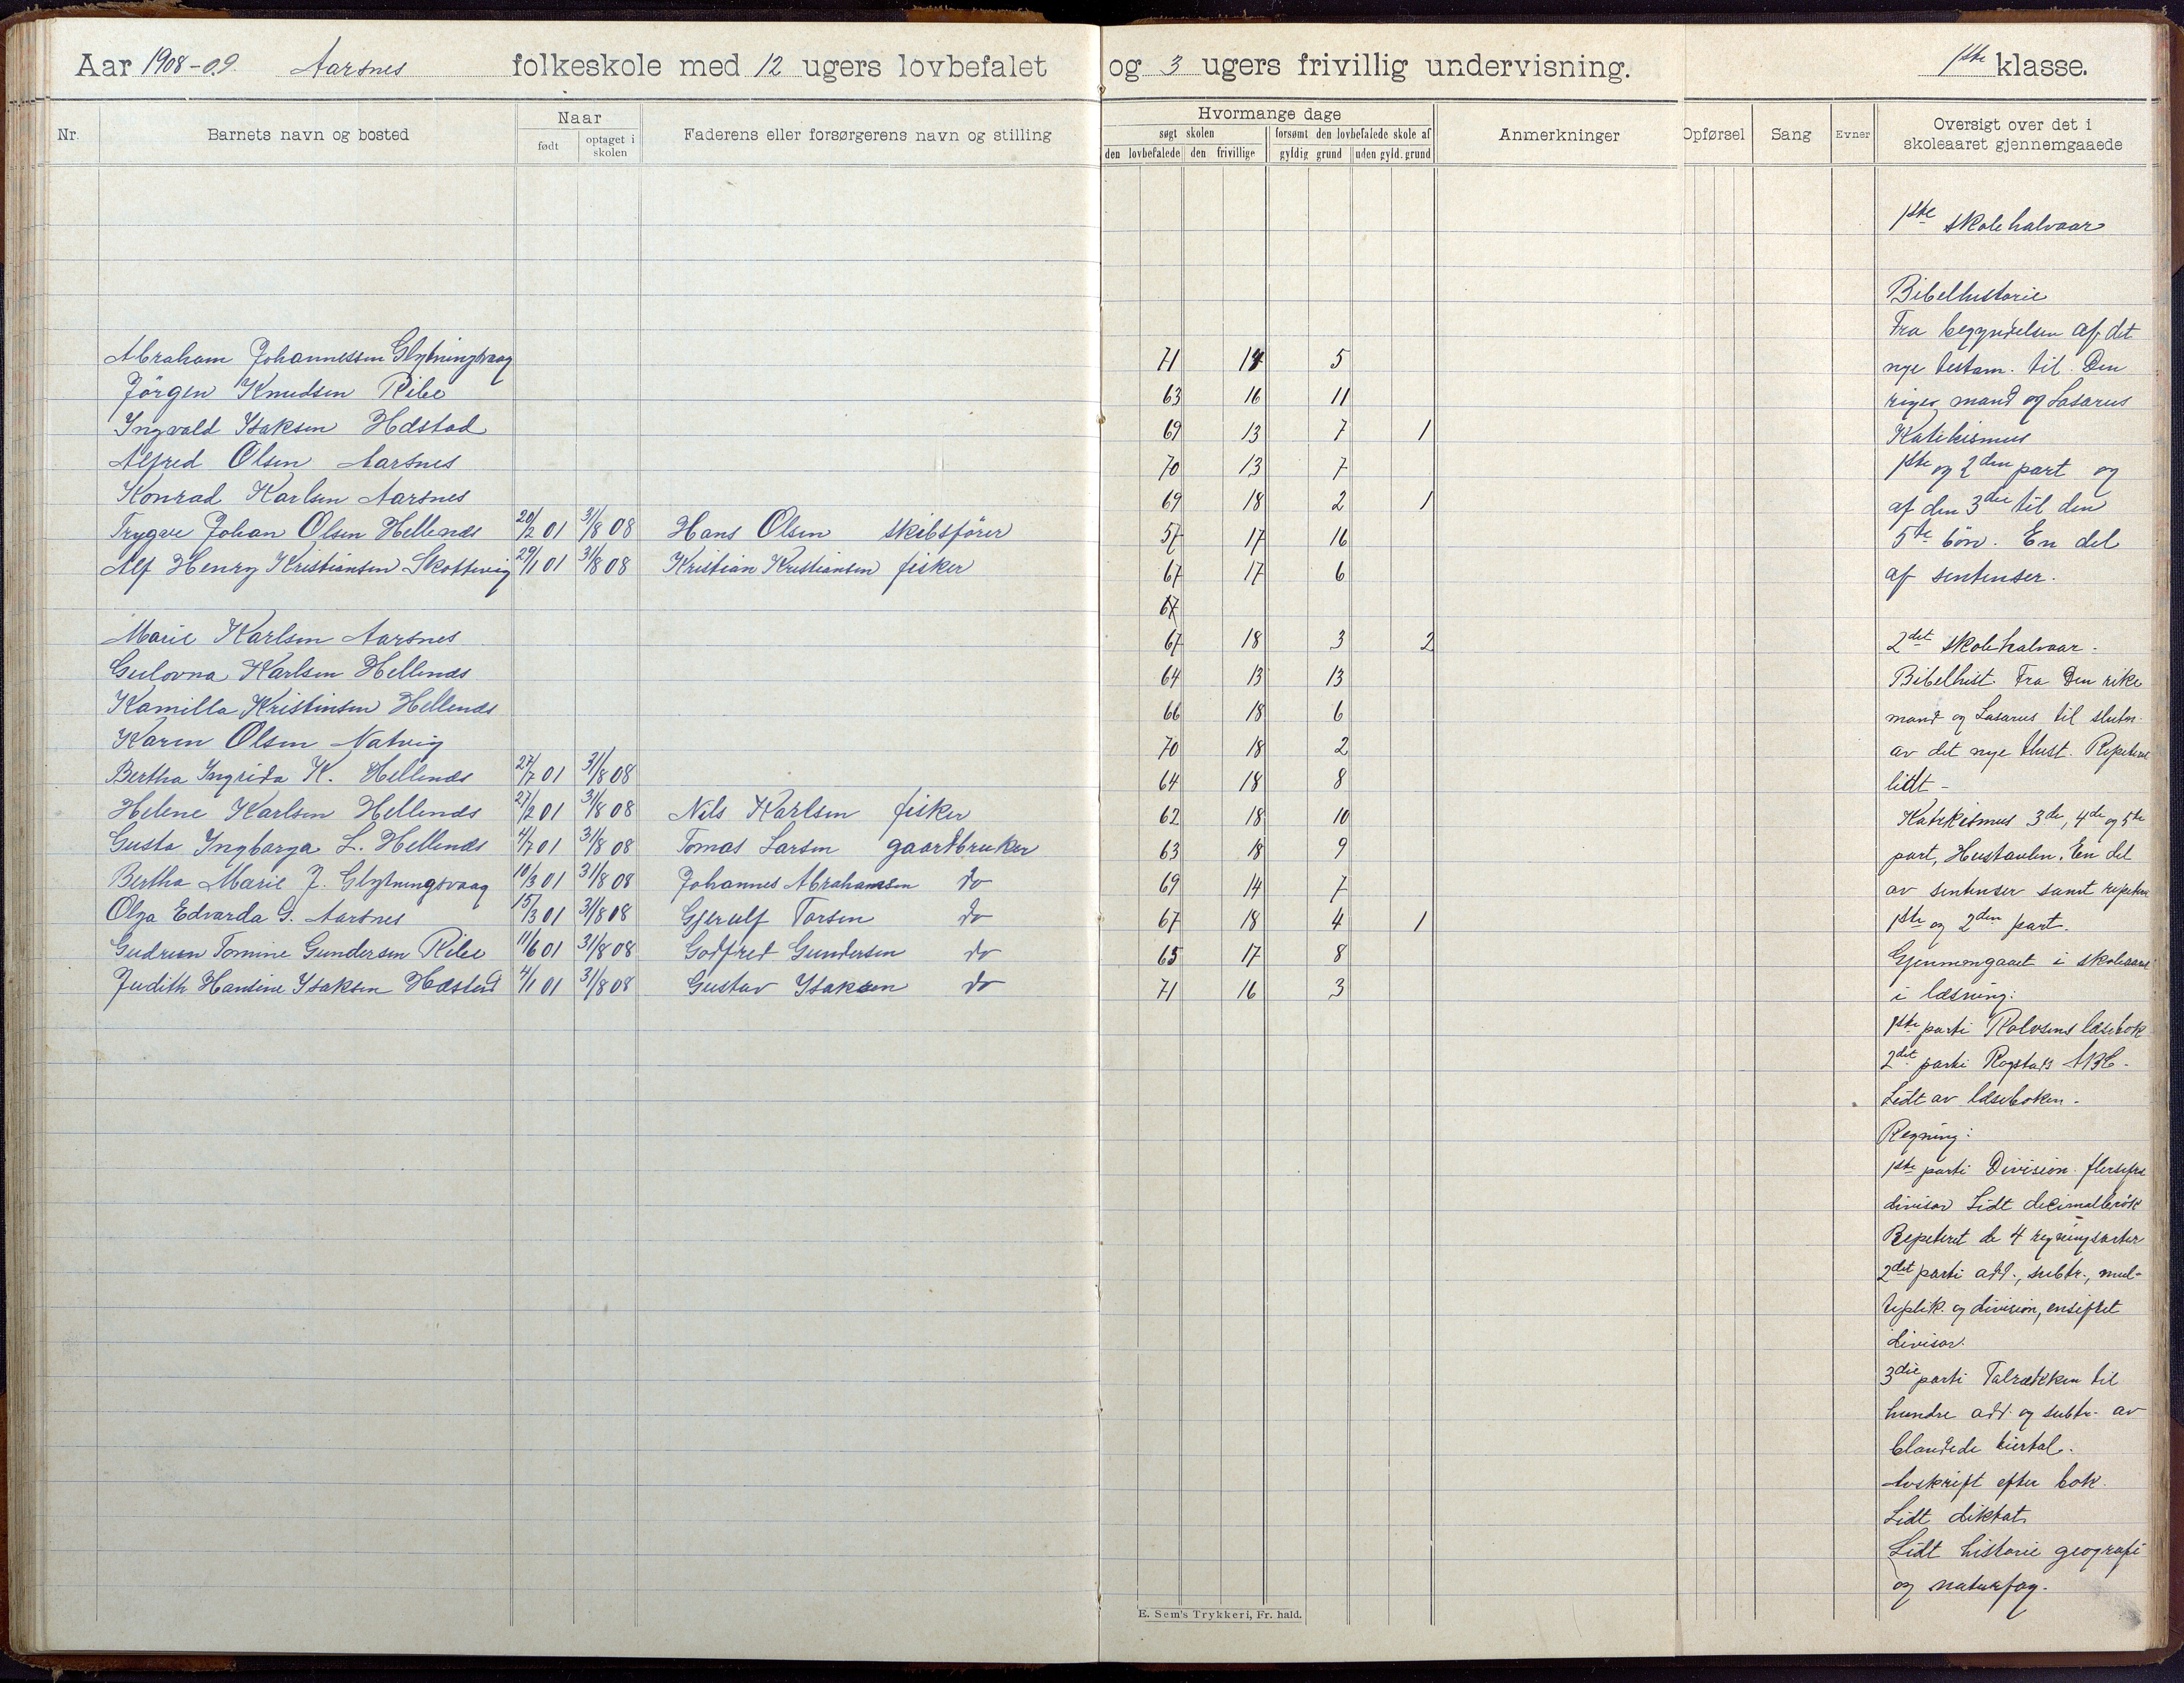 Aar 1908-09 Aarsnes folkeskole med 12 ugers lovbefalet og 3 ugers frivillig undervisning. 1ste klasse.
Nr. Barnets navn og bosted Naar født optaget i skolen Faderens eller forsørgerens navn og stilling
Hvormange dage
søgt skolen forsømt den lovbefalede skole af
den lovbefalede den frivillige gyldig grund uden gyld. grund
Anmerkninger Opførsel Sang Evner Oversigt over det i skoleaaret gjennemgaaede
Abraham Johannessen Glytningsvaag 71 14 5
Jörgen Knudsen Ribe 63 16 11
Ingvald Isaksen Hæstad 69 13 7 1
Alfred Olsen Aarsnes 70 13 7
Konrad Karlsen Aarsnes 69 18 2 1
Trygve Johan Olsen Hellenæs 20/2 01 31/8 08 Hans Olsen skibsfører 57 17 16
Alf Henry Kristiansen Skottevig 29/1 01 31/8 08 Kristian Kristiansen fisker 67 17 6
67
Marie Karlsen Aarsnes 67 18 3 2
Gulovna Karlsen Hellenæs 64 13 13
Kamilla Kristinsen Hellenæs 66 18 6
Karen Olsen Natvig 70 18 2
Bertha Ingrida K. Hellenæs 27/7 01 31/8 08 64 18 8
Helene Karlsen Hellenæs 27/2 01 31/8 08 Nils Karlsen fisker 62 18 10
Gusta Ingbarga L. Hellenæs 4/7 01 31/8 08 Tomas Larsen gaardbruker 63 18 9
Bertha Marie J. Glytningsvaag 10/3 01 31/8 08 Johannes Abrahamsen do 69 14 7
Olga Edvarda G. Aarsnes 15/3 01 31/8 08 Gjerulf Torsen do 67 18 4 1
Gudrun Tomine Gundersen Ribe 11/6 01 31/8 08 Godfred Gundersen do 65 17 8
Judith Hansine Isaksen Hæstad 4/1 01 31/8 08 Gustav Isaksen do 71 16 3
1ste skolehalvaar
Bibelhistorie
Fra begyndelsen af det
nye testam. til Den
riges mand og Lasarus
Katekismus
1ste og 2den part og
af den 3die til den
5te bøn. En del
af sentenser.
2det skolehalvaar.
Bibelhist. Fra Den rike
mand og Lasarus til slutn.
av det nye test. Repetert
lidt -
Katekismus 3die, 4de og 5te
part, Hustavlen. En del
av sentenser samt repetert
1ste og 2den part.
Gjennemgaaet i skoleaaret
i læsning:
1ste parti Rolvsens læsebok
2det parti Rogstads ABC.
Lidt av læseboken.
Regning:
1ste parti Division flersifret
divisor Lidt decimalbrøk
Repeteret de 4 regningsarter
2det parti add., subtr., mul-
tiplik. og division, ensifret
divisor.
3die parti Talrækken til
hundre add. og subtr. av
blandede tiertal.
Avskrift efter bok.
Lidt diktat.
Lidt historie geografi
og naturfag.
E. Sem's Trykkeri, Fr. hald.